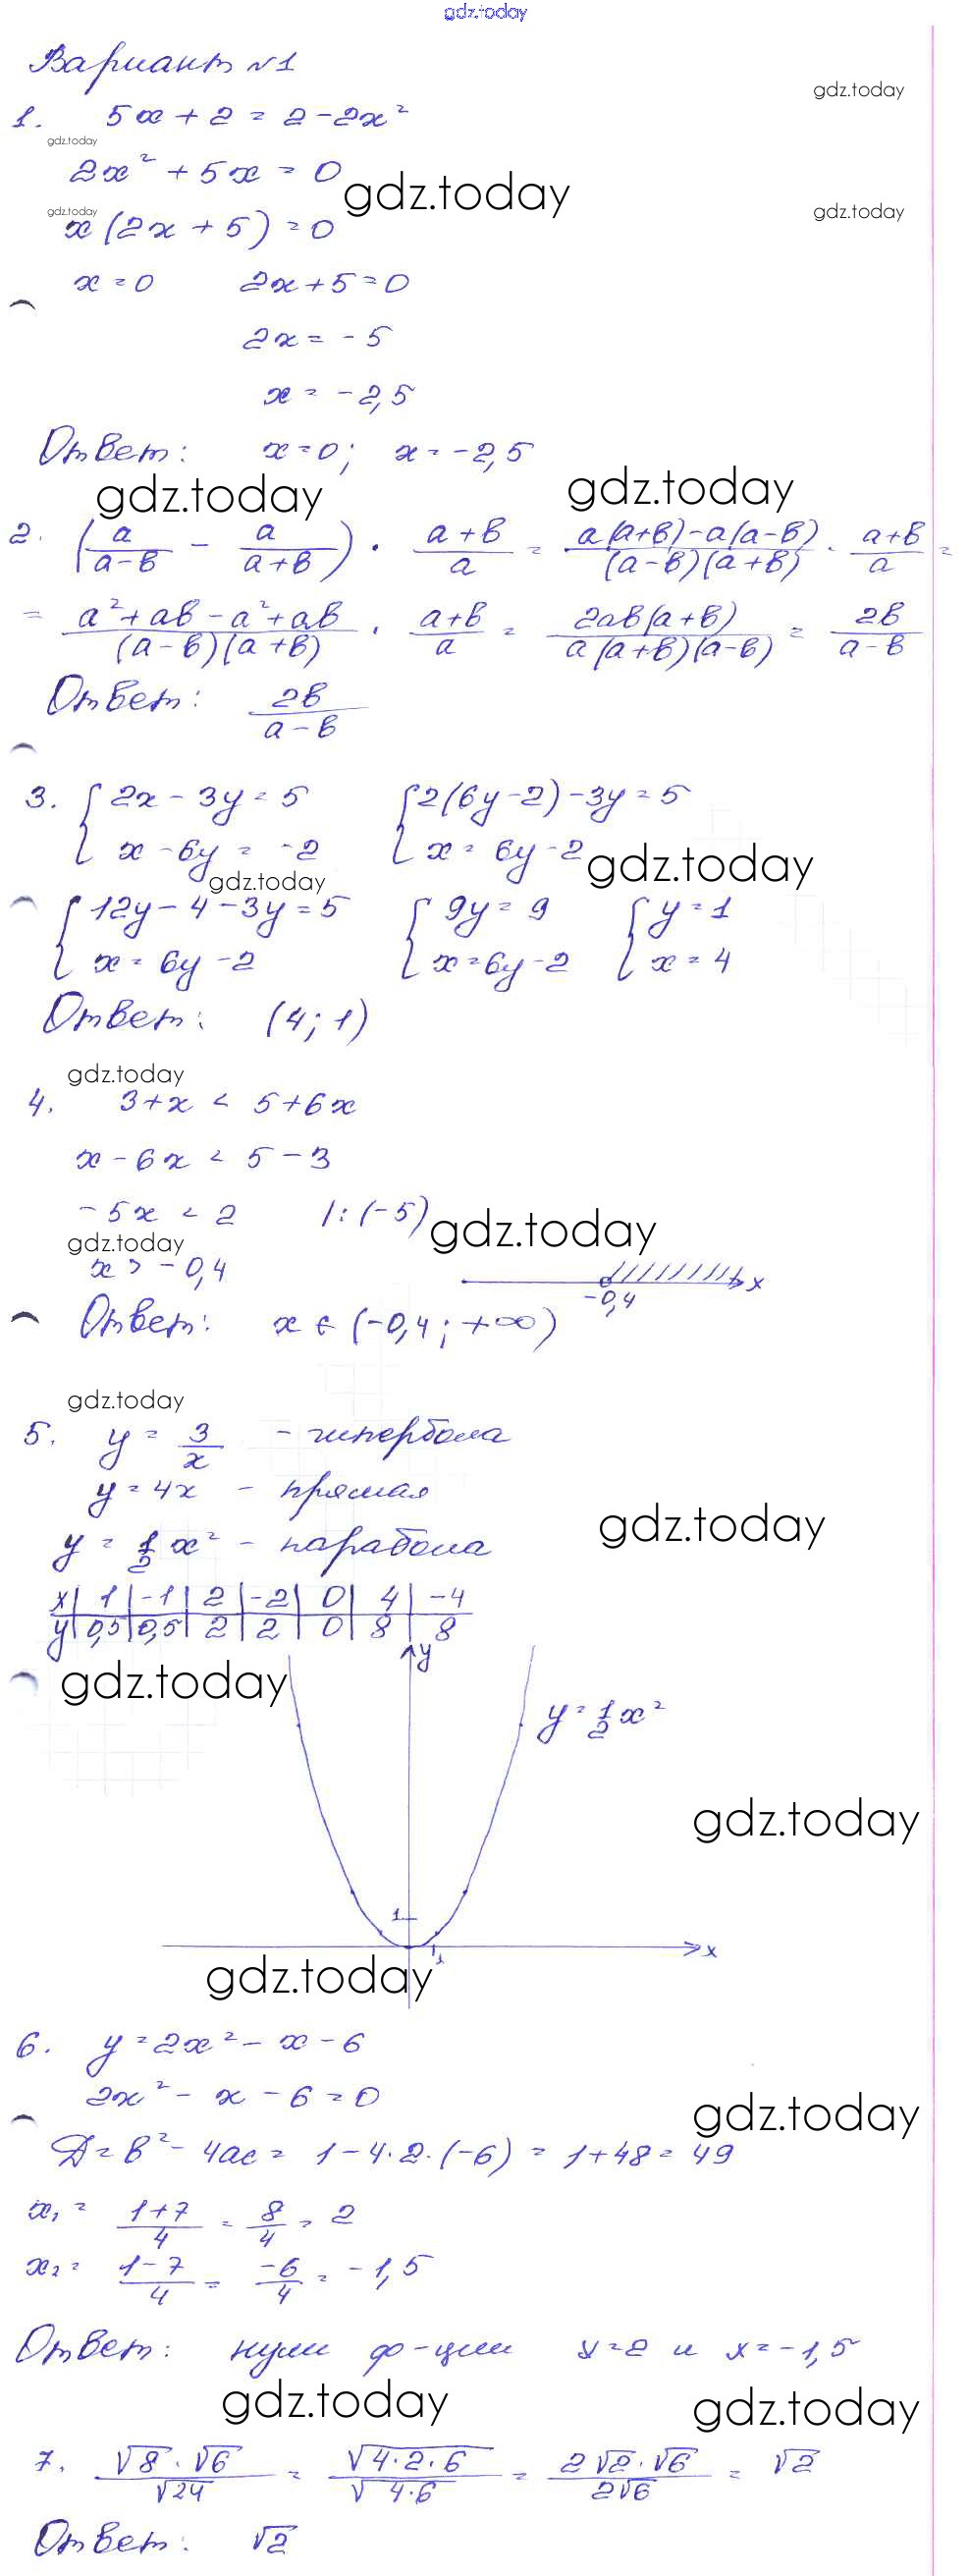 gdz.today
Вариант №1
gdz.today
1. 5x + 2 = 2 - 2x²
gdz.today
2x² + 5x = 0
gdz.today
gdz.today gdz.today
x(2x + 5) = 0
x = 0 2x + 5 = 0
2x = -5
x = -2,5
Ответ: x = 0; x = -2,5
gdz.today gdz.today
2. (a/(a-в) - a/(a+в)) · (a+в)/a = (a(a+в)-a(a-в))/((a-в)(a+в)) · (a+в)/a =
= (a²+aв-a²+aв)/((a-в)(a+в)) · (a+в)/a = 2aв(a+в)/(a(a+в)(a-в)) = 2в/(a-в)
Ответ: 2в/(a-в)
3. { 2x - 3y = 5 { 2(6y-2) - 3y = 5
x - 6y = -2 x = 6y-2 gdz.today
gdz.today
{ 12y - 4 - 3y = 5 { 9y = 9 { y = 1
x = 6y - 2 x = 6y - 2 x = 4
Ответ: (4; 1)
gdz.today
4. 3+x < 5+6x
x - 6x < 5 - 3
-5x < 2 |: (-5) gdz.today
gdz.today
x > -0,4 x
-0,4
Ответ: x ∈ (-0,4; +∞)
gdz.today
5. y = 3/x - гипербола
y = 4x - прямая
gdz.today
y = 1/2 x² - парабола
x | 1 | -1 | 2 | -2 | 0 | 4 | -4
y | 0,5 | 0,5 | 2 | 2 | 0 | 8 | 8
y
gdz.today
y = 1/2 x²
gdz.today
1
x
1
gdz.today
6. y = 2x² - x - 6
2x² - x - 6 = 0
gdz.today
Д = в² - 4ac = 1 - 4·2·(-6) = 1 + 48 = 49
x₁ = (1+7)/4 = 8/4 = 2
x₂ = (1-7)/4 = -6/4 = -1,5
Ответ: нули ф-ции x = 2 и x = -1,5
gdz.today gdz.today
7. (√8 · √6)/√24 = √(4·2·6)/√(4·6) = (2√2 · √6)/(2√6) = √2
Ответ: √2